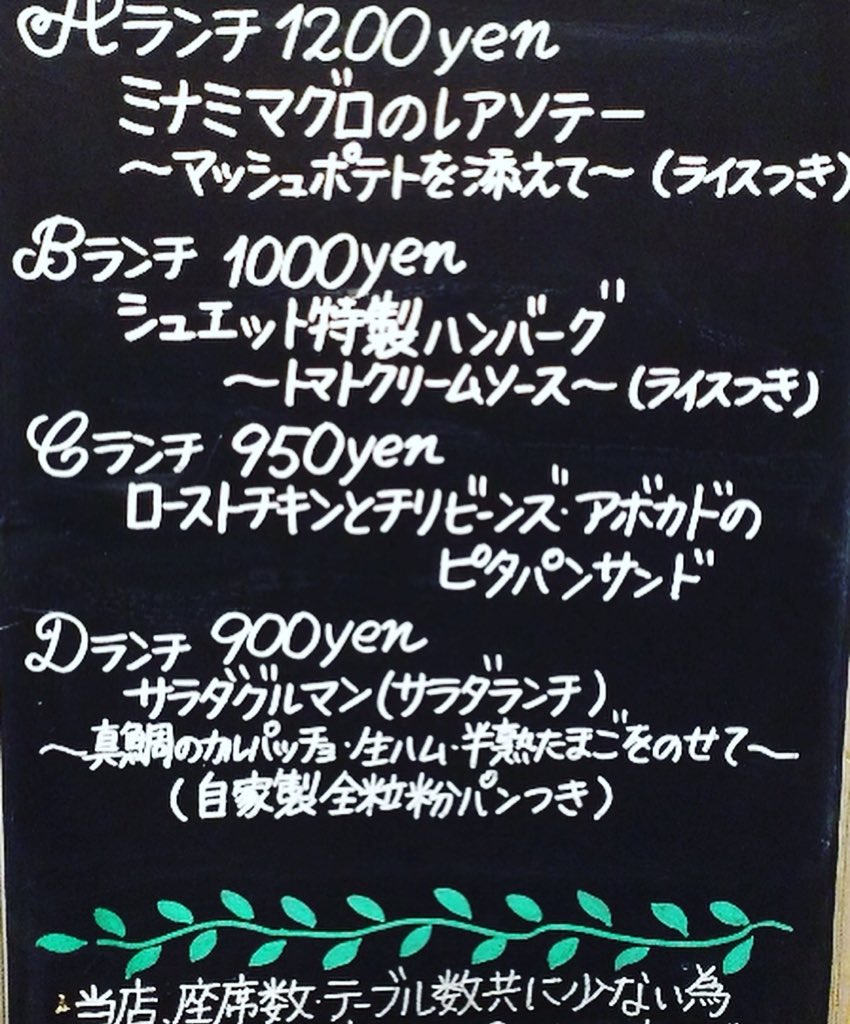 Aランチ 1200yen
ミナミマグロのレアソテー
〜マッシュポテトを添えて〜(ライスつき)
Bランチ 1000yen
シュエット特製ハンバーグ
〜トマトクリームソース〜(ライスつき)
Cランチ 950yen
ローストチキンとチリビーンズ・アボカドの
ピタパンサンド
Dランチ 900yen
サラダグルマン(サラダランチ)
〜真鯛のカルパッチョ・生ハム・半熟たまごをのせて〜
(自家製全粒粉パンつき)
当店、座席数・テーブル数共に少ない為